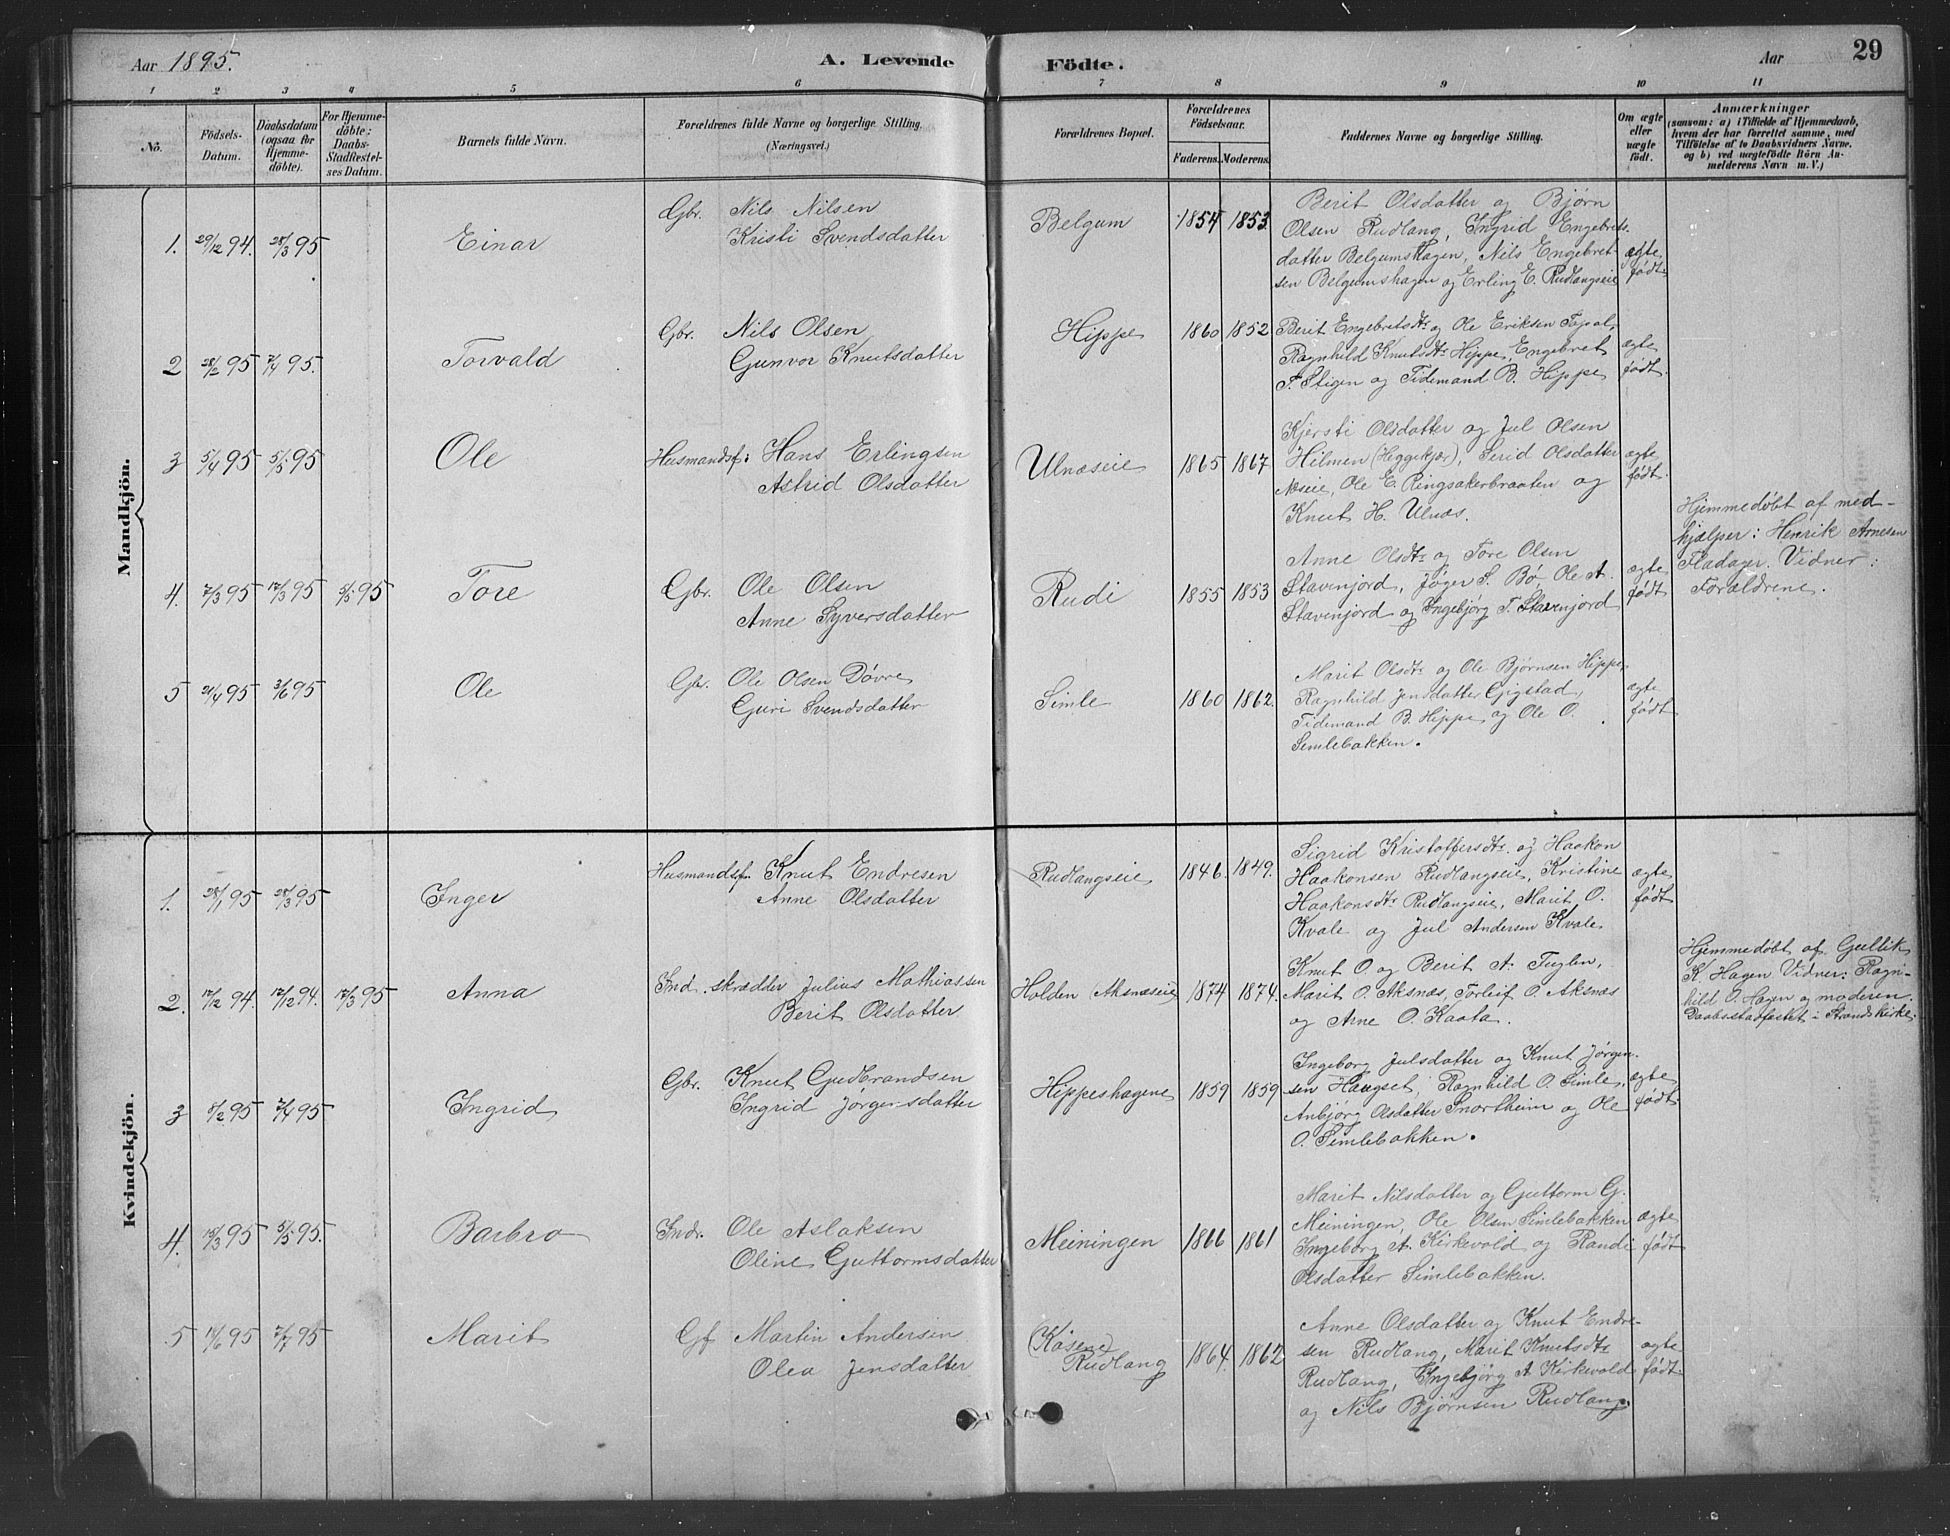 Aar 1895. A. Levende Födte. Aar 29
1 2 3 4 5 6 7 8 9 10 11
No. Födsels-Datum. Daabsdatum (ogsaa for Hjemmedöbte). For Hjemmedöbte; Daabs-Stadfæstelses Datum. Barnets fulde Navn. Forældrenes fulde Navne og borgerlige Stilling. (Næringsvei.) Forældrenes Bopæl. Forældrenes Födselsaar. Faderens. Moderens. Faddernes Navne og borgerlige Stilling. Om ægte eller uægte födt. Anmærkninger (saasom: a) i Tilfælde af Hjemmedaab, hvem der har forrettet samme, med Tilföielse af to Daabsvidners Navne. og b) ved uægtefödte Börn Anmelderens Navn m. V.)
Mandkjön.
1. 29/12 94. 28/3 95 Einar Gbr. Nils Nilsen Belgum 1854 1853. Berit Olsdatter og Bjørn
Kristi Svendsdatter Olsen Rudlang, Ingrid Engebrets-
datter Belgumshagen, Nils Engebret- ægte
sen Belgumshagen og Erling E. Rudlangseie født
2 28/2 95 7/4 95. Torvald Gbr. Nils Olsen Hippe 1860 1852 Berit Engebretsdtr og Ole Eriksen
Gunvor Knutsdatter Ragnhild Knutsdtr Hippe, Engebret ægte
T. Stigen og Tidemand B. Hippe født.
3 5/4 95 5/5 95 Ole Husmandsf: Hans Erlingsen Ulnæseie 1865 1867 Kjersti Olsdatter og Jul Olsen
Astrid Olsdatter Hilmen (Heggekjær), Serid Olsdatter ægte
Næseie, Ole E. Ringsakerbraaten og født.
Knut H. Ulnæs.
4. 7/3 95 17/3 95 5/5 95 Tore Gbr. Ole Olsen Rudi 1855 1853 Anne Olsdtr og Tore Olsen
Anne Syversdatter Stavenjord, Jøger S. Bø, Ole A. ægte
Stavenjord og Ingebjørg T. Stavenjord født
Hjemmedøbt af med-
hjælper: Henrik Arnesen
Fladager. Vidner:
Forældrene.
5 21/4 95 3/6 95 Ole Gbr. Ole Olsen Døvre Simle 1860 1862. Marit Olsdtr og Ole Bjørnsen Hippe,
Guri Svendsdatter Ragnhild Jensdatter Gigstad, ægte
Tidemand B. Hippe og Ole O. født
Simlebakken.
Kvindekjön.
1. 28/1 95 28/3 95 Inger Husmandsf. Knut Endresen Rudlangseie 1846. 1849. Sigrid Kristoffersdtr. og Haakon
Anne Olsdatter Haakonsen Rudlangseie, Kristine ægte
Haakonsdtr Rudlangseie, Marit O. født
Kvale og Jul Andersen Kvale
2. 17/12 94. 17/12 94. 17/3 95 Anna Ind. skrædder Julius Mathiassen Holden Aksnæseie 1874 1874. Knut O. og Berit A. Fuglen,
Berit Olsdatter Marit O. Aksnæs, Torleif O. Aksnæs
og Arne O. Kaata.
Hjemmedøbt af Gullik
K. Hagen Vidner: Ragn-
hild O. Hagen og moderen.
Daabsstadfæstet i Strands kirke.
3 8/2 95 7/4 95 Ingrid Gbr. Knut Gudbrandsen Hippeshagene 1859 1859 Ingeborg Julsdatter og Knut Jørgen-
Ingrid Jørgensdatter sen Haugset, Ragnhild O. Simle, ægte
Anbjørg Olsdatter Snortheim og Ole født.
O. Simlebakken.
4. 15/3 95 5/5 95. Barbro Indr. Ole Aslaksen Meiningen 1866 1861 Marit Nilsdatter og Guttorm G.
Oline Guttormsdatter Meiningen, Ole Olsen Simlebakken ægte
Ingeborg A. Kirkevold og Randi født
Olsdatter Simlebakken.
5 14/6 95 7/7 95 Marit Gf Martin Andersen (Kåsene) 1864. 1862 Anne Olsdatter og Knut Endre-
Olea Jensdatter Rudlang sen Rudlang, Marit Knutsdtr ægte
Rudlang, Ingebjørg A Kirkevold født.
og Nils Bjørnsen Rudlang.